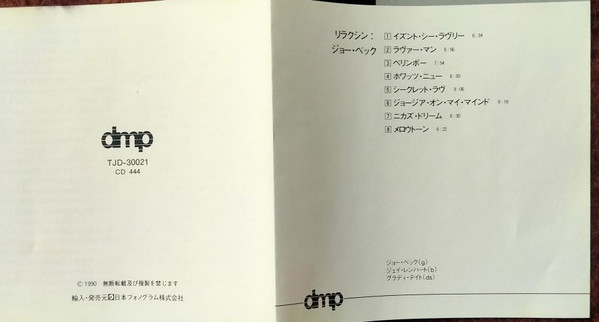 dmp
TJD-30021
CD 444
© 1990 無断転載及び複製を禁じます
輸入・発売元 日本フォノグラム株式会社
リラクシン:
ジョー・ベック
1 イズント・シー・ラヴリー 6:34
2 ラヴァー・マン 6:56
3 ベリンボー 7:54
4 ホワッツ・ニュー 6:30
5 シークレット・ラヴ 6:06
6 ジョージア・オン・マイ・マインド 6:19
7 ニカズ・ドリーム 6:30
8 メロウトーン 6:22
ジョー・ベック(g)
ジェイ・レンハート(b)
グラディ・テイト(ds)
dmp